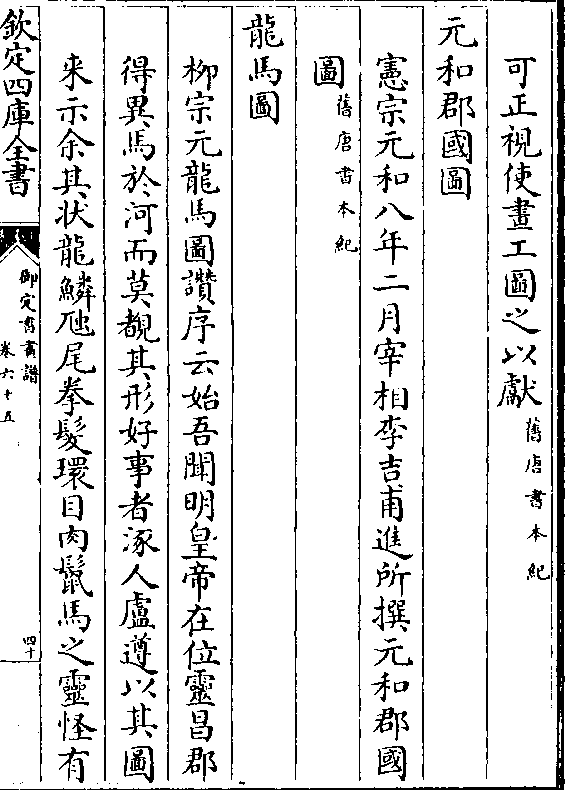 可正視使畫工圖之以獻舊唐書本紀
元和郡國圖
憲宗元和八年二月宰相李吉甫進所撰元和郡國
圖舊唐書本紀
龍馬圖
栁宗元龍馬圖讚序云始吾聞明皇帝在位靈昌郡
得異馬於河而莫覩其形好事者涿人盧遵以其圖
来示余其狀龍鱗虺尾拳髮環目肉鬛馬之靈怪有
欽定四庫全書
御定書畫譜
卷六十五
四十